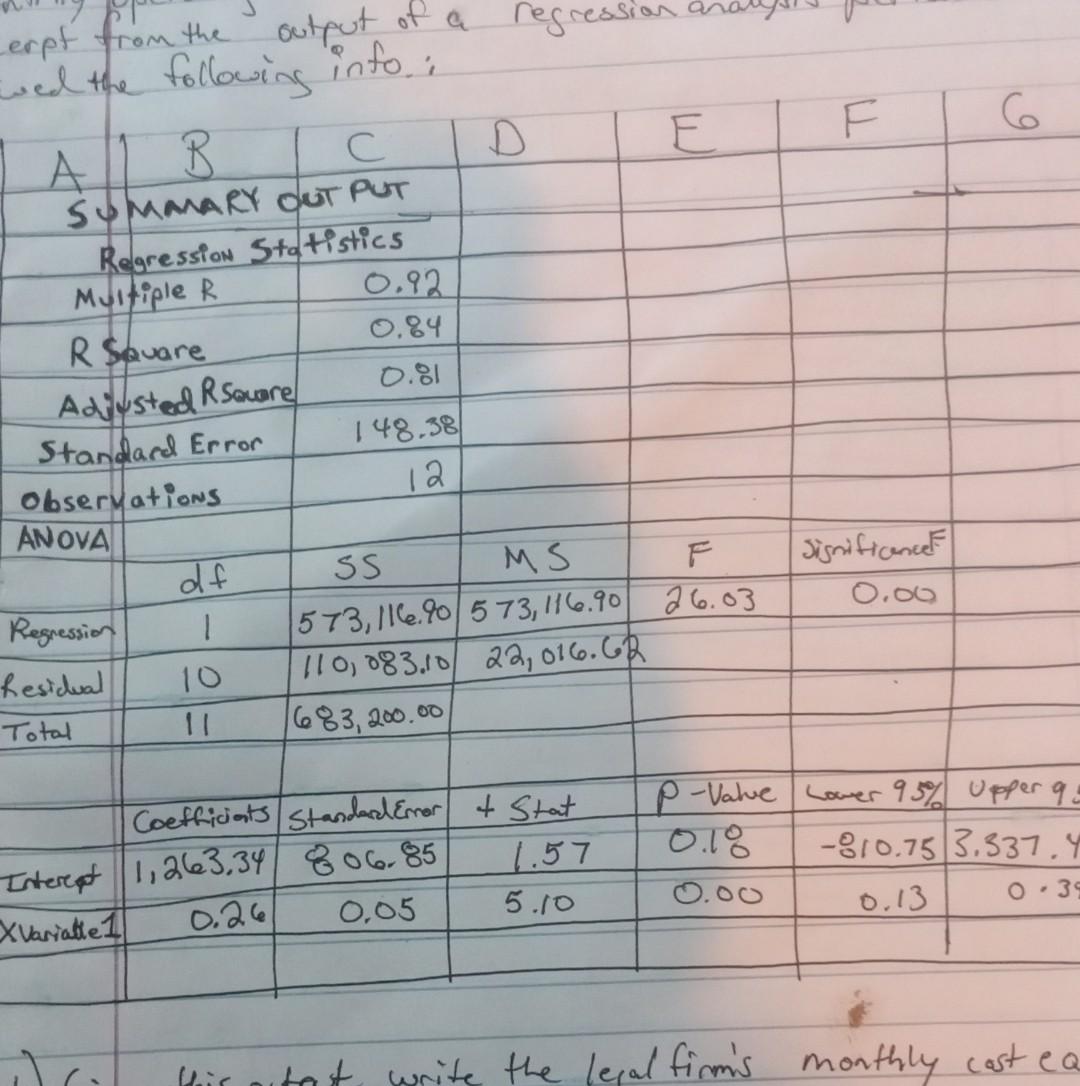 erpt from the output of a regression analysis
the following info.:
A B C D E F G
SUMMARY OUT PUT
Regression Statistics
Multiple R 0.92
R Square 0.84
Adjusted R Square 0.81
Standard Error 148.38
Observations 12
ANOVA
df SS MS F Significance F
Regression 1 573,116.90 573,116.90 26.03 0.00
Residual 10 110,083.10 22,016.62
Total 11 683,200.00
Coefficients Standard Error t Stat P-Value Lower 95% Upper 95
Intercept 1,263.34 806.85 1.57 0.18 -810.75 3.337.4
X Variable 1 0.26 0.05 5.10 0.00 0.13 0.39
this output write the legal firm's monthly cost eq